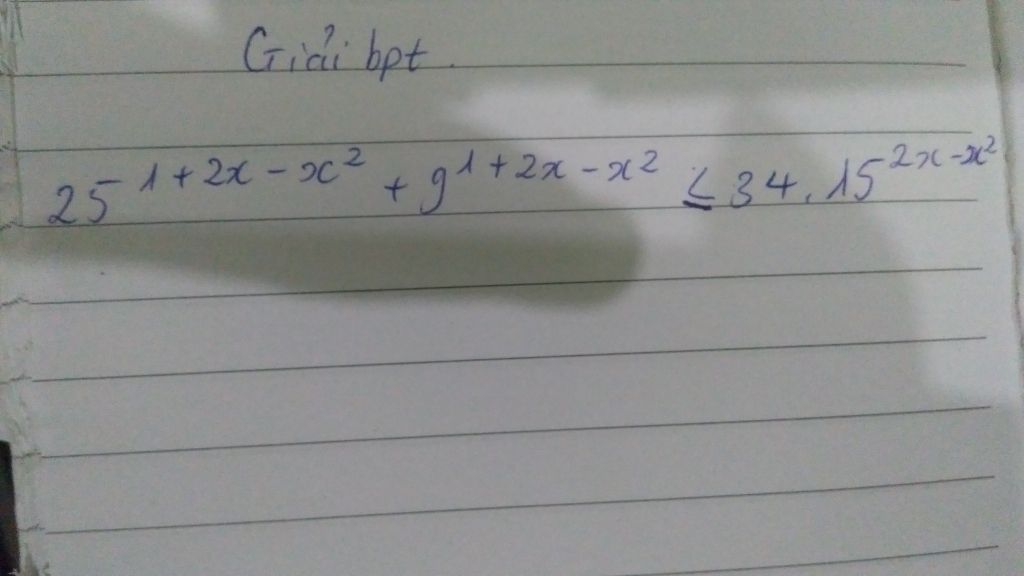 Giải bpt.
25^{1+2x-x^2} + 9^{1+2x-x^2} ≤ 34.15^{2x-x^2}